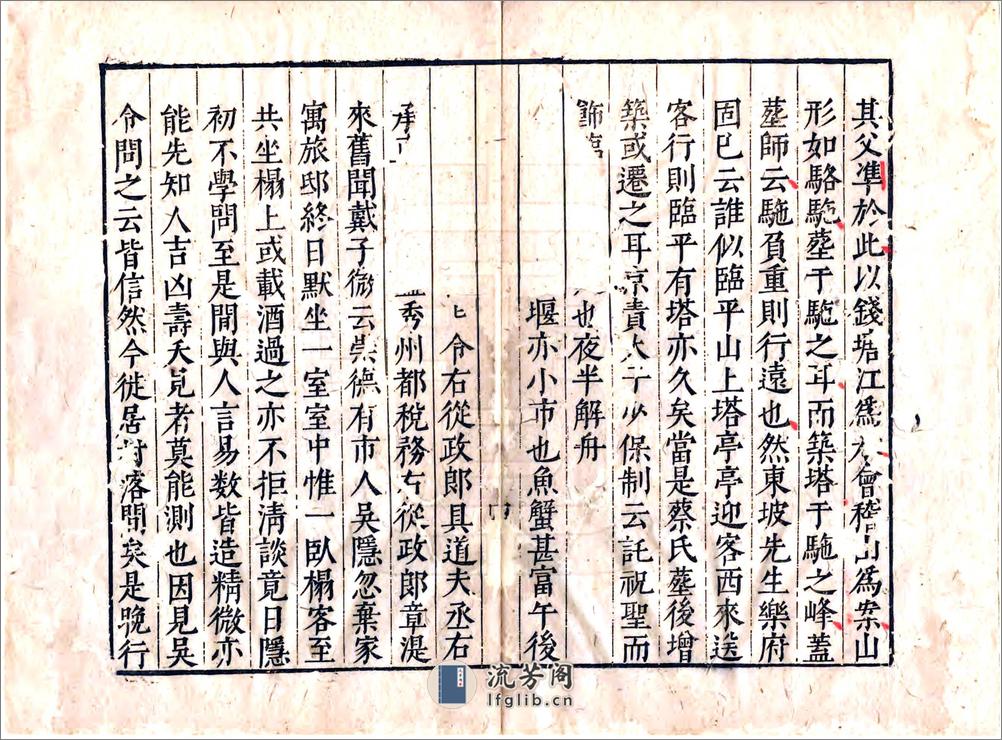 其父準於此以錢塘江為水會稽山為案山
形如駱駞塟于駞之耳而築塔于駞之峰蓋
塟師云駞負重則行遠也然東坡先生樂府
固已云誰似臨平山上塔亭亭迎客西來送
客行則臨平有塔亦久矣當是蔡氏塟後增
築或遷之耳京責太子少保制云託祝聖而
飾臨
也夜半解舟
堰亦小市也魚蟹甚富午後
令右從政郎呉道夫丞右
承
秀州都稅務右從政郎章湜
來舊聞戴子微云崇德有市人吳隱忽棄家
寓旅邸終日默坐一室室中惟一臥榻客至
共坐榻上或載酒過之亦不拒清談竟日隱
初不學問至是間與人言易數皆造精微亦
能先知人吉凶壽夭見者莫能測也因見吳
令問之云皆信然今徙居村落間矣是晚行
流芳閣
lfglib.cn